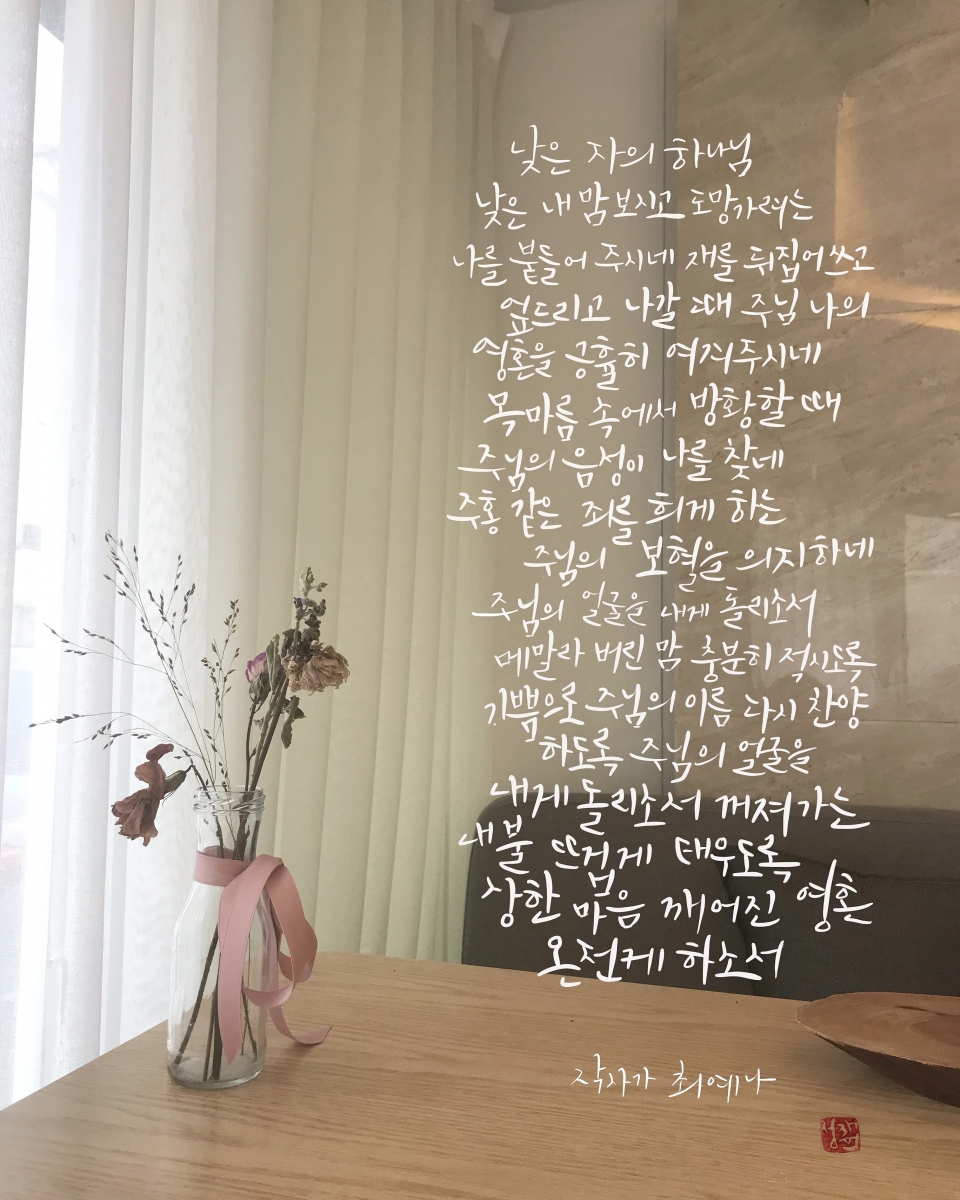 낮은 자의 하나님
낮은 내 맘 보시고 도망가려는
나를 붙들어 주시네 재를 뒤집어쓰고
엎드리고 나갈 때 주님 나의
영혼을 긍휼히 여겨주시네
목마름 속에서 방황할 때
주님의 음성이 나를 찾네
주홍 같은 죄를 희게 하는
주님의 보혈을 의지하네
주님의 얼굴을 내게 돌리소서
메말라 버린 맘 충분히 적시도록
기쁨으로 주님의 이름 다시 찬양
하도록 주님의 얼굴을
내게 돌리소서 꺼져가는
내 불 뜨겁게 태우도록
상한 마음 깨어진 영혼
온전케 하소서
작사가 최예나